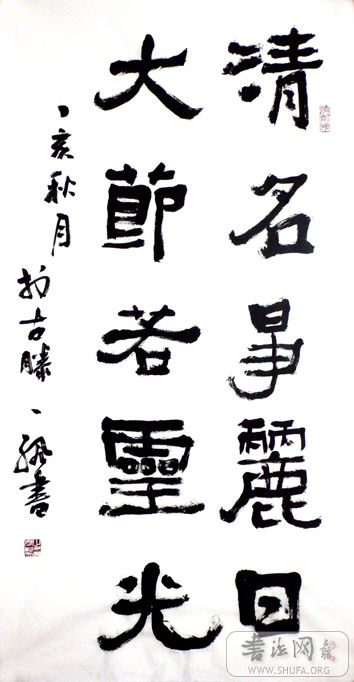 清名爭麗日
大節若靈光
丁亥秋月於古滕書
書法网
WWW.SHUFA.ORG